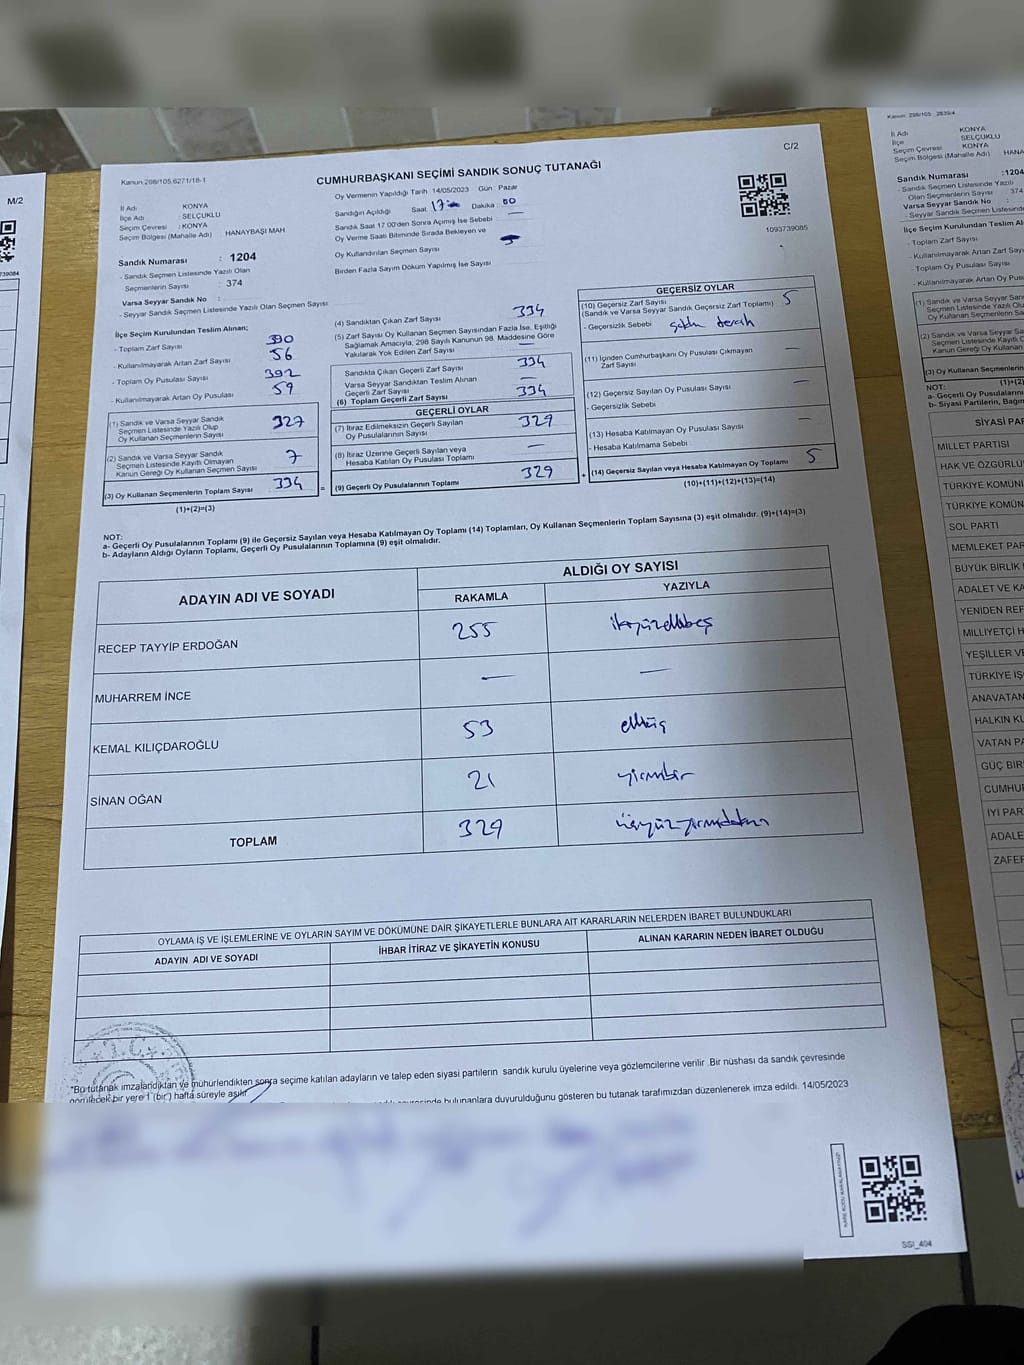 Kanun 298/105,6271/18-1
C/2
CUMHURBAŞKANI SEÇİMİ SANDIK SONUÇ TUTANAĞI
İl Adı : KONYA
İlçe Adı : SELÇUKLU
Seçim Çevresi : KONYA
Seçim Bölgesi (Mahalle Adı) HANAYBAŞI MAH
Sandık Numarası : 1204
- Sandık Seçmen Listesinde Yazılı Olan
Seçmenlerin Sayısı : 374
Varsa Seyyar Sandık No :
- Seyyar Sandık Seçmen Listesinde Yazılı Olan Seçmen Sayısı
Oy Vermenin Yapıldığı Tarih : 14/05/2023 Gün : Pazar
Sandığın Açıldığı Saat 17 Dakika : 00
Sandık Saat 17:00'den Sonra Açımış İse Sebebi —
Oy Verme Saati Bitiminde Sırada Bekleyen ve
Oy Kullandırılan Seçmen Sayısı
Birden Fazla Sayım Döküm Yapılmış İse Sayısı
1093739085
İlçe Seçim Kurulundan Teslim Alınan;
- Toplam Zarf Sayısı 390
- Kullanılmayarak Artan Zarf Sayısı 56
- Toplam Oy Pusulası Sayısı 392
- Kullanılmayarak Artan Oy Pusulası Sayısı 59
(1) Sandık ve Varsa Seyyar Sandık
Seçmen Listesinde Yazılı Olup
Oy Kullanan Seçmenlerin Sayısı 327
(2) Sandık ve Varsa Seyyar Sandık
Seçmen Listesinde Kayıtlı Olmayan
Kanun Gereği Oy Kullanan Seçmen Sayısı 7
(3) Oy Kullanan Seçmenlerin Toplam Sayısı 334
(1)+(2)=(3)
(4) Sandıktan Çıkan Zarf Sayısı 334
(5) Zarf Sayısı Oy Kullanan Seçmen Sayısından Fazla İse, Eşitliği
Sağlamak Amacıyla, 298 Sayılı Kanunun 98. Maddesine Göre
Yakılarak Yok Edilen Zarf Sayısı —
Sandıkta Çıkan Geçerli Zarf Sayısı 334
Varsa Seyyar Sandıktan Teslim Alınan
Geçerli Zarf Sayısı —
(6) Toplam Geçerli Zarf Sayısı 334
GEÇERLİ OYLAR
(7) İtiraz Edilmeksizin Geçerli Sayılan
Oy Pusulalarının Sayısı 329
(8) İtiraz Üzerine Geçerli Sayılan veya
Hesaba Katılan Oy Pusulası Toplamı —
= (9) Geçerli Oy Pusulalarının Toplamı 329
GEÇERSİZ OYLAR
(10) Geçersiz Zarf Sayısı
(Sandık ve Varsa Seyyar Sandık Geçersiz Zarf Toplamı) 5
- Geçersizlik Sebebi
(11) İçinden Cumhurbaşkanı Oy Pusulası Çıkmayan
Zarf Sayısı —
(12) Geçersiz Sayılan Oy Pusulası Sayısı —
- Geçersizlik Sebebi
(13) Hesaba Katılmayan Oy Pusulası Sayısı —
- Hesaba Katılmama Sebebi
+ (14) Geçersiz Sayılan veya Hesaba Katılmayan Oy Toplamı 5
(10)+(11)+(12)+(13)=(14)
NOT:
a- Geçerli Oy Pusulalarının Toplamı (9) ile Geçersiz Sayılan veya Hesaba Katılmayan Oy Toplamı (14) Toplamları, Oy Kullanan Seçmenlerin Toplam Sayısına (3) eşit olmalıdır. (9)+(14)=(3)
b- Adayların Aldığı Oyların Toplamı, Geçerli Oy Pusulalarının Toplamına (9) eşit olmalıdır.
ADAYIN ADI VE SOYADI
ALDIĞI OY SAYISI
RAKAMLA YAZIYLA
RECEP TAYYİP ERDOĞAN 255 ikiyüzellibeş
MUHARREM İNCE — —
KEMAL KILIÇDAROĞLU 53 elliüç
SİNAN OĞAN 21 yirmibir
TOPLAM 329 üçyüzyirmidokuz
OYLAMA İŞ VE İŞLEMLERİNE VE OYLARIN SAYIM VE DÖKÜMÜNE DAİR ŞİKAYETLERLE BUNLARA AİT KARARLARIN NELERDEN İBARET BULUNDUKLARI
ADAYIN ADI VE SOYADI İHBAR İTİRAZ VE ŞİKAYETİN KONUSU ALINAN KARARIN NEDEN İBARET OLDUĞU
T.C.
*Bu tutanak imzalandıktan ve mühürlendikten sonra seçime katılan adayların ve talep eden siyasi partilerin sandık kurulu üyelerine veya gözlemcilerine verilir .Bir nüshası da sandık çevresinde
görülecek bir yere 1 (bir) hafta süreyle asılır
bulunanlara duyurulduğunu gösteren bu tutanak tarafımızdan düzenlenerek imza edildi. 14/05/2023
SSI_404
M/2
739084
Kanun: 298/105 2839/4
İl Adı KONYA
İlçe SELÇUKLU
Seçim Çevresi KONYA
Seçim Bölgesi (Mahalle Adı) HANA
Sandık Numarası :1204
- Sandık Seçmen Listesinde Yazılı
Olan Seçmenlerin Sayısı : 374
Varsa Seyyar Sandık No :
- Seyyar Sandık Seçmen Listesinde
İlçe Seçim Kurulundan Teslim Al
- Toplam Zarf Sayısı
- Kullanılmayarak Artan Zarf Sayısı
- Toplam Oy Pusulası Sayısı
- Kullanılmayarak Artan Oy Pusu
(1) Sandık ve Varsa Seyyar San
Seçmen Listesinde Yazılı Olu
Oy Kullanan Seçmenlerin Sa
(2) Sandık ve Varsa Seyyar San
Seçmen Listesinde Kayıtlı O
Kanun Gereği Oy Kullanan S
(3) Oy Kullanan Seçmenlerin
(1)+(2)
NOT:
a- Geçerli Oy Pusulalarının
b- Siyasi Partilerin, Bağım
SİYASİ PAR
MİLLET PARTİSİ
HAK VE ÖZGÜRLÜ
TÜRKİYE KOMÜNİ
TÜRKİYE KOMÜN
SOL PARTİ
MEMLEKET PAR
BÜYÜK BİRLİK
ADALET VE KA
YENİDEN REF
MİLLİYETÇİ H
YEŞİLLER VE
TÜRKİYE İŞ
ANAVATAN
HALKIN KU
VATAN PA
GÜÇ BİR
CUMHUR
İYİ PAR
ADALE
ZAFER